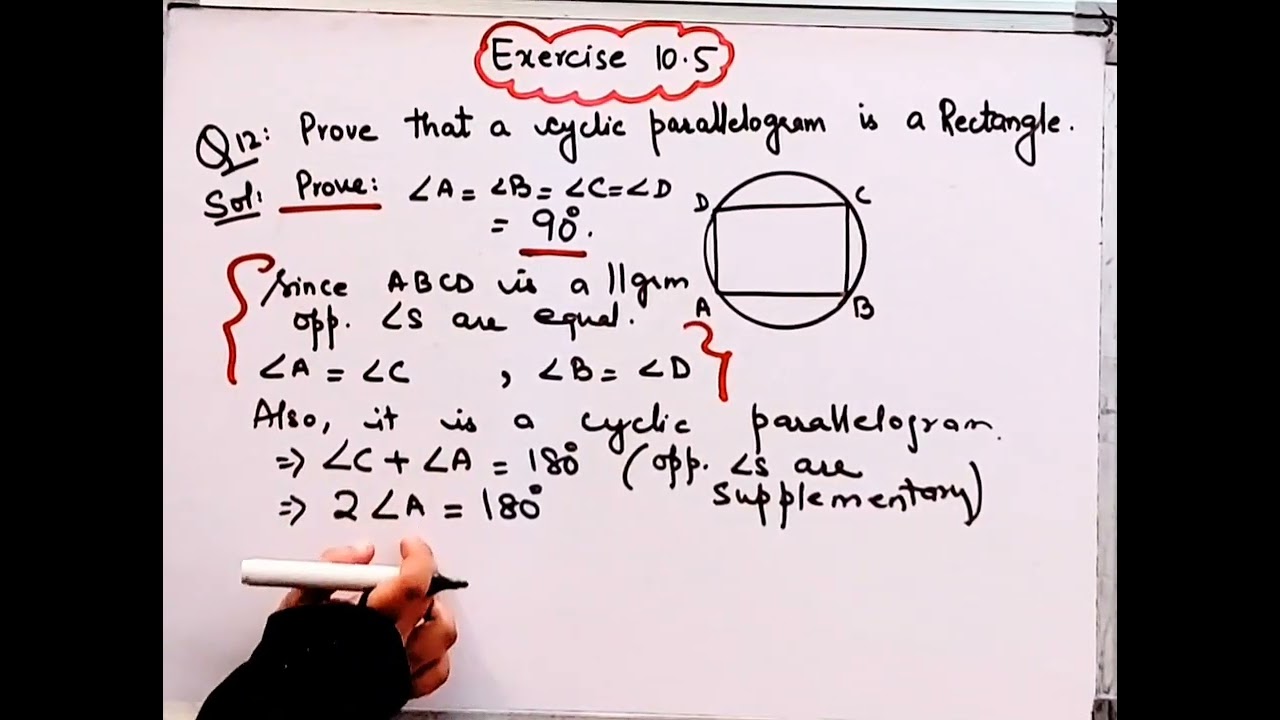 Exercise 10.5
Q12: Prove that a cyclic parallelogram is a Rectangle.
Sol: Prove: ∠A = ∠B = ∠C = ∠D
= 90°.
D C
A B
Since ABCD is a ||gm
opp. ∠s are equal.
∠A = ∠C , ∠B = ∠D
Also, it is a cyclic parallelogram.
⇒ ∠C + ∠A = 180° (opp. ∠s are
supplementary)
⇒ 2∠A = 180°